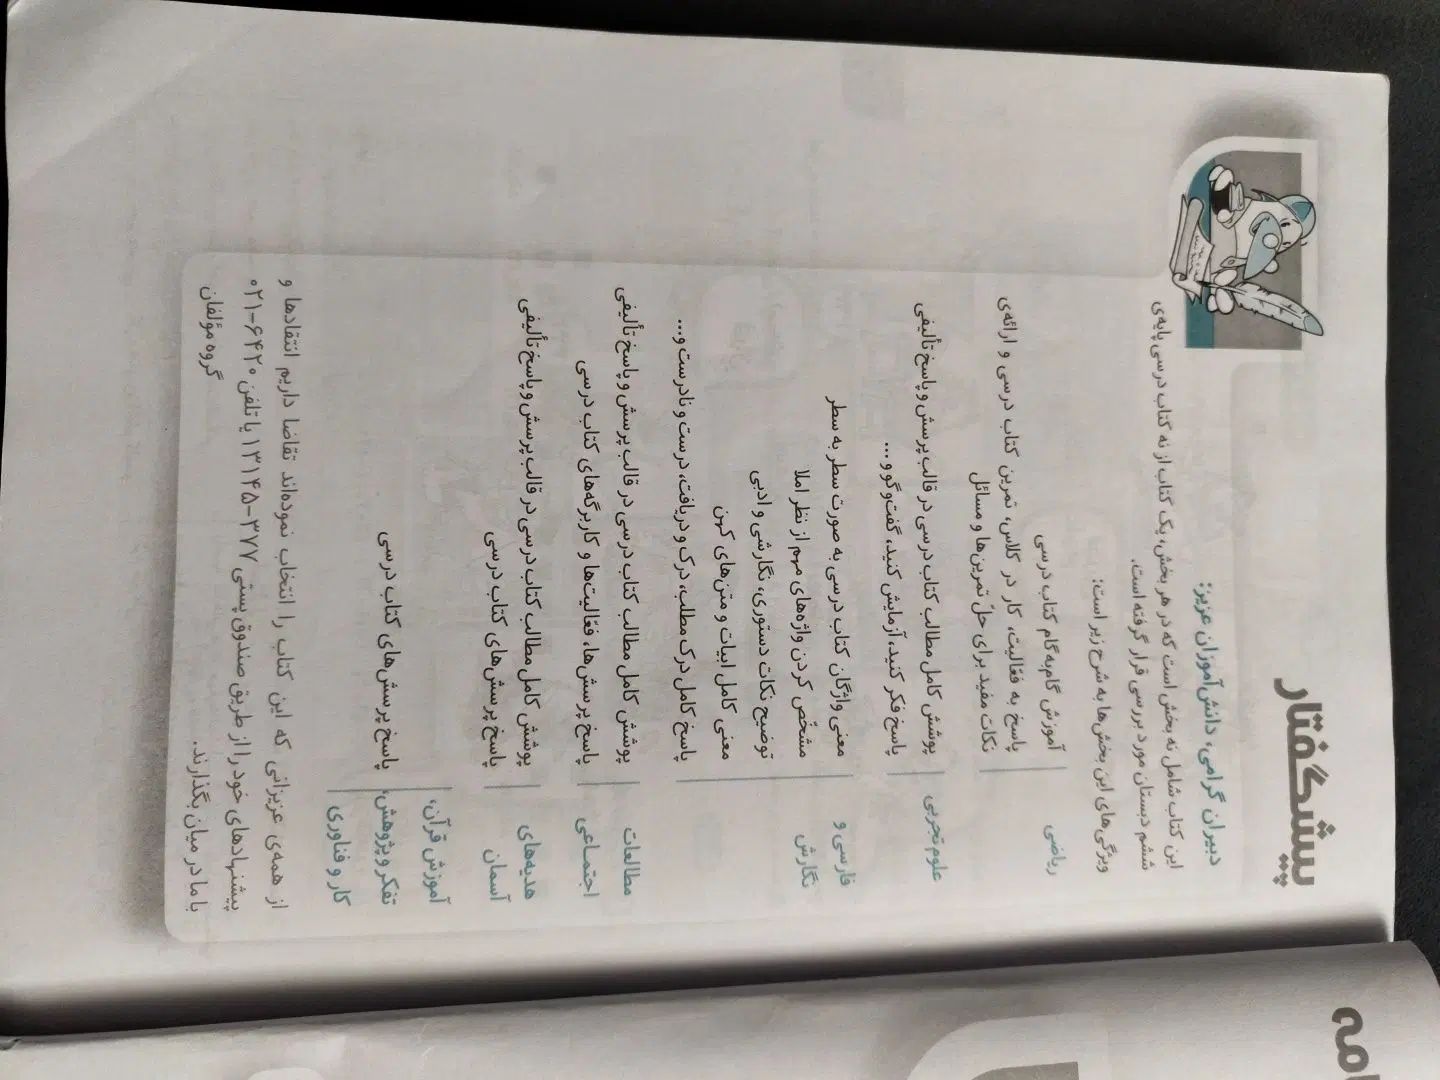 پیشگفتار
دبیران گرامی، دانش‌آموزان عزیز:
این کتاب شامل نه بخش است که در هر بخش، یک کتاب از نه کتاب درسی پایه‌ی
ششم دبستان مورد بررسی قرار گرفته است.
ویژگی‌های این بخش‌ها به شرح زیر است:
ریاضی
آموزش گام‌به‌گام کتاب درسی
پاسخ به فعّالیت، کار در کلاس، تمرین کتاب درسی و ارائه‌ی
نکات مفید برای حلّ تمرین‌ها و مسائل
علوم تجربی
پوشش کامل مطالب کتاب درسی در قالب پرسش و پاسخ تألیفی
پاسخ فکر کنید، آزمایش کنید، گفت‌وگو و...
فارسی و
نگارش
معنی واژگان کتاب درسی به صورت سطر به سطر
مشخّص کردن واژه‌های مهم از نظر املا
توضیح نکات دستوری، نگارشی و ادبی
معنی کامل ابیات و متن‌های کهن
پاسخ کامل درک مطلب، درک و دریافت، درست و نادرست و...
مطالعات
اجتماعی
پوشش کامل مطالب کتاب درسی در قالب پرسش و پاسخ تألیفی
پاسخ پرسش‌ها، فعّالیت‌ها و کاربرگه‌های کتاب درسی
هدیه‌های
آسمان
پوشش کامل مطالب کتاب درسی در قالب پرسش و پاسخ تألیفی
پاسخ پرسش‌های کتاب درسی
آموزش قرآن،
تفکر و پژوهش،
کار و فناوری
پاسخ پرسش‌های کتاب درسی
از همه‌ی عزیزانی که این کتاب را انتخاب نموده‌اند تقاضا داریم انتقادها و
پیشنهادهای خود را از طریق صندوق پستی ۳۷۷-۱۳۱۴۵ یا تلفن ۶۴۲۰-۰۲۱
با ما در میان بگذارند.
گروه مؤلفان